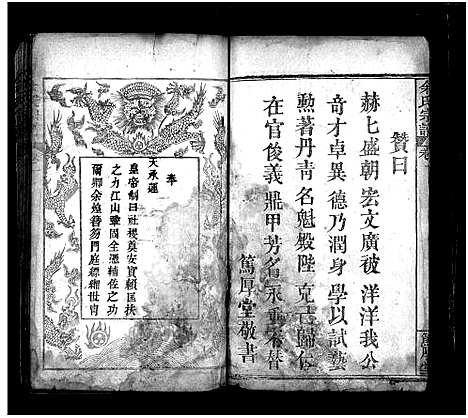 余氏宗譜
贊曰
赫七盛朝 宏文廣被 洋洋我公
奇才卓異 德乃潤身 學以試藝
勲著丹青 名魁殿陛 克己歸仁
在官俊義 鼎甲芳名 永垂不替
篤厚堂敬書
奉
天承運
皇帝制曰社稷奠安實賴匡扶
之力江山鞏固全憑精佐之功
爾卿余煌簪笏門庭縹緗世胄